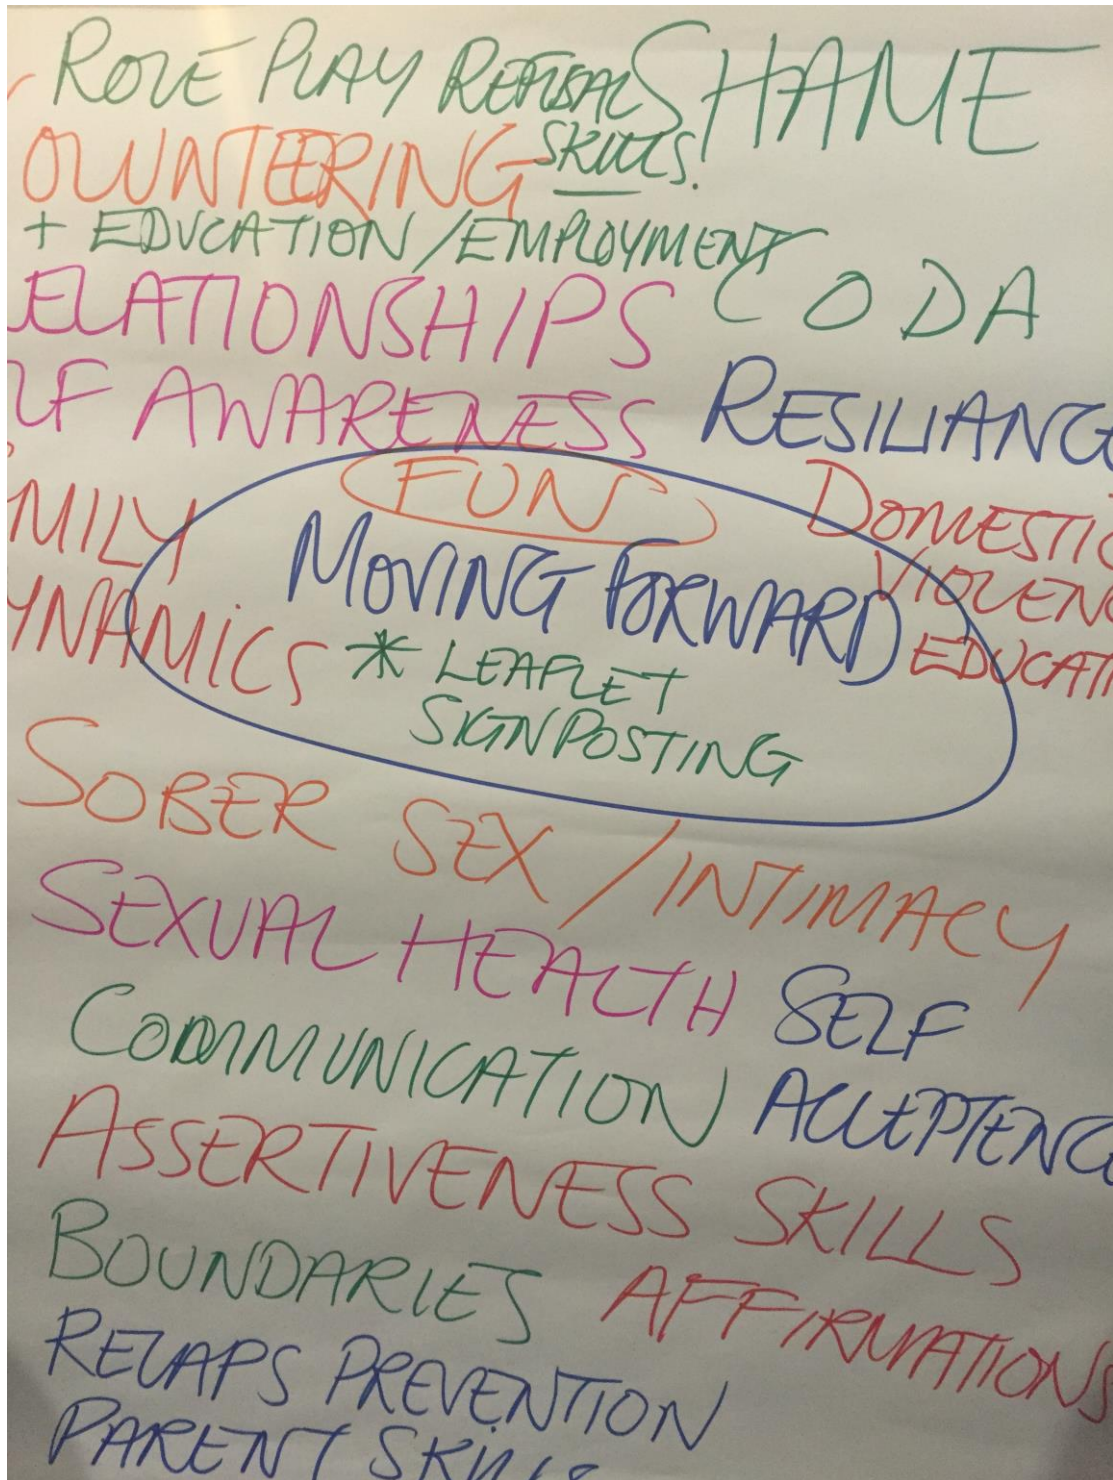 ROLE PLAY REFUSAL SKILLS.
SHAME
OLUNTEERING
+ EDUCATION / EMPLOYMENT
CODA
ELATIONSHIPS
LF AWARENESS
RESILIANC
FUN
MILY
YNAMICS
MOVING FORWARD
* LEAFLET
SIGNPOSTING
DOMESTIC
VIOLENC
EDUCATI
SOBER SEX / INTIMACY
SEXUAL HEALTH
SELF
ACCEPTENC
COMMUNICATION
ASSERTIVENESS SKILLS
BOUNDARIES
AFFIRMATIONS
RELAPS PREVENTION
PARENT SKILLS